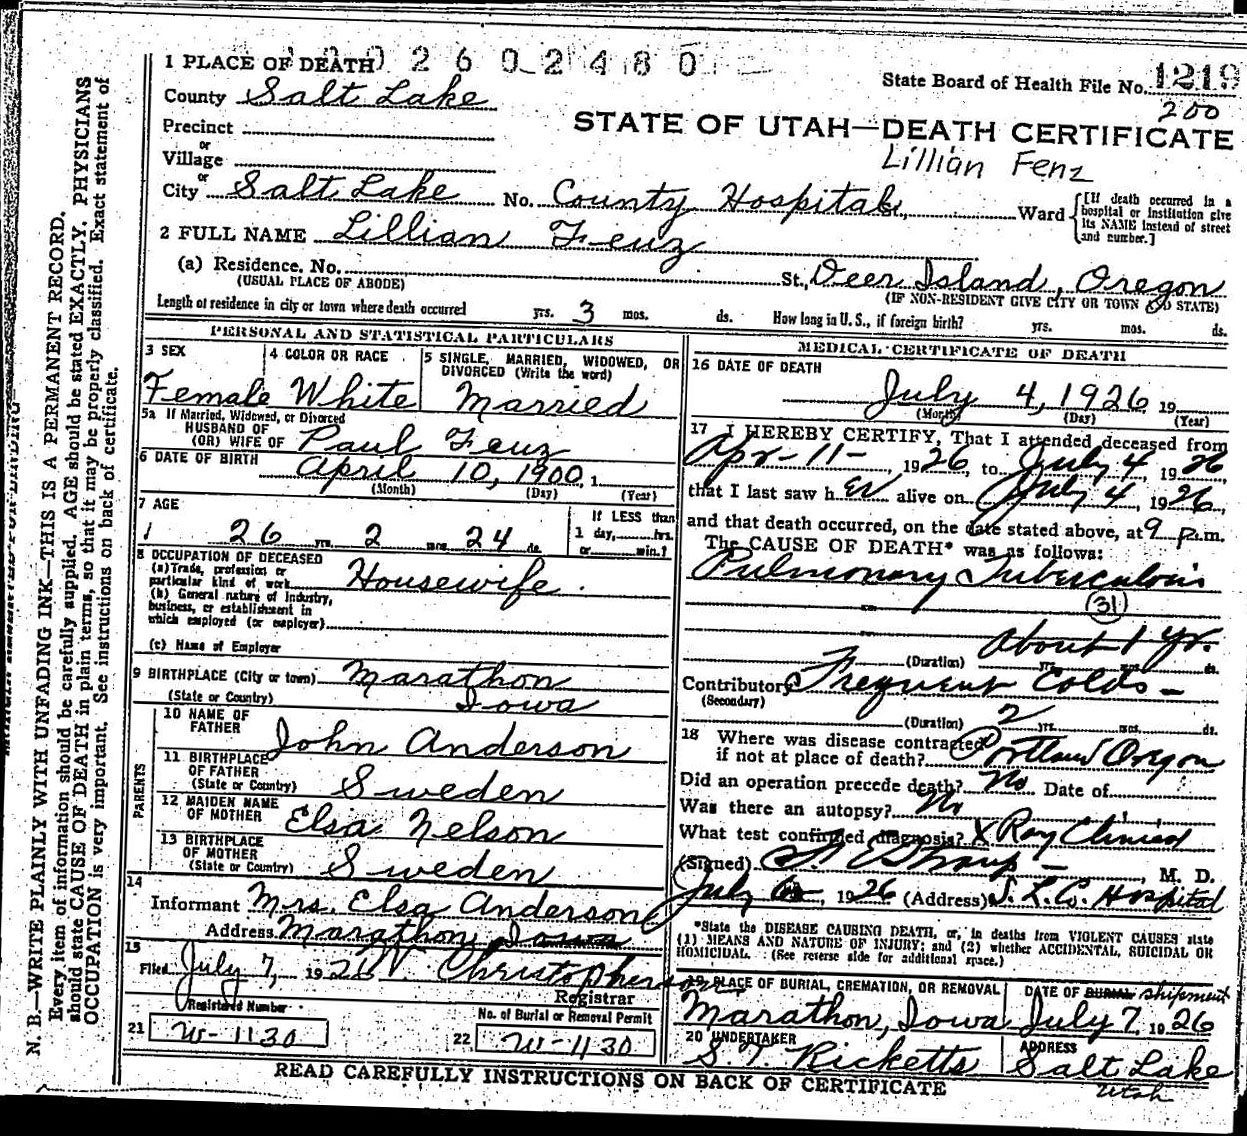 N. B.—WRITE PLAINLY WITH UNFADING INK—THIS IS A PERMANENT RECORD.
Every item of information should be carefully supplied. AGE should be stated EXACTLY. PHYSICIANS
should state CAUSE OF DEATH in plain terms, so that it may be properly classified. Exact statement of
OCCUPATION is very important. See instructions on back of certificate.
1 PLACE OF DEATH 2 6 0 2 4 8 0
State Board of Health File No. 1219
200
County Salt Lake
STATE OF UTAH—DEATH CERTIFICATE
Precinct
Lillian Fenz
or
Village
or
City Salt Lake No. County Hospital St., Ward
[If death occurred in a
hospital or institution give
its NAME instead of street
and number.]
2 FULL NAME Lillian Feuz
(a) Residence. No. St., Deer Island, Oregon
(USUAL PLACE OF ABODE) (IF NON-RESIDENT GIVE CITY OR TOWN AND STATE)
Length of residence in city or town where death occurred yrs. 3 mos. ds. How long in U. S., if foreign birth? yrs. mos. ds.
PERSONAL AND STATISTICAL PARTICULARS
3 SEX 4 COLOR OR RACE 5 SINGLE, MARRIED, WIDOWED, OR
DIVORCED (Write the word)
Female White Married
5a If Married, Widowed, or Divorced
HUSBAND OF
(OR) WIFE OF Paul Feuz
6 DATE OF BIRTH April 10, 1900, 1
(Month) (Day) (Year)
7 AGE If LESS than
26 yrs. 2 mos. 24 ds. 1 day, hrs.
or min.?
8 OCCUPATION OF DECEASED
(a) Trade, profession or
particular kind of work Housewife.
(b) General nature of Industry,
business, or establishment in
which employed (or employer)
(c) Name of Employer
9 BIRTHPLACE (City or town) Marathon
(State or Country) Iowa
PARENTS
10 NAME OF
FATHER John Anderson
11 BIRTHPLACE
OF FATHER
(State or Country) Sweden
12 MAIDEN NAME
OF MOTHER Elsa Nelson
13 BIRTHPLACE
OF MOTHER
(State or Country) Sweden
14
Informant Mrs. Elsa Anderson
Address Marathon, Iowa
15
Filed July 7, 1926 Christopherson
Registrar
Registered Number No. of Burial or Removal Permit
21 W-1130 22 W-1130
MEDICAL CERTIFICATE OF DEATH
16 DATE OF DEATH
July 4, 1926 19
(Month) (Day) (Year)
17 I HEREBY CERTIFY, That I attended deceased from
Apr-11-, 1926, to July 4 1926,
that I last saw her alive on July 4, 1926,
and that death occurred, on the date stated above, at 9 p.m.
The CAUSE OF DEATH* was as follows:
Pulmonary Tuberculosis
(31)
About 1 yr.
(Duration) yrs. mos. ds.
Contributory Frequent Colds-
(Secondary)
(Duration) 2 yrs. mos. ds.
18 Where was disease contracted
if not at place of death? Portland Oregon
Did an operation precede death? No Date of
Was there an autopsy? No
What test confirmed diagnosis? X Ray Clinical
(Signed) , M. D.
July 6, 1926 (Address) S. L. Co. Hospital
*State the DISEASE CAUSING DEATH, or, in deaths from VIOLENT CAUSES state
(1) MEANS AND NATURE OF INJURY; and (2) whether ACCIDENTAL, SUICIDAL OR
HOMICIDAL. (See reverse side for additional space.)
19 PLACE OF BURIAL, CREMATION, OR REMOVAL DATE OF BURIAL shipment
Marathon, Iowa July 7, 1926
20 UNDERTAKER ADDRESS
S. T. Ricketts Salt Lake
Utah
READ CAREFULLY INSTRUCTIONS ON BACK OF CERTIFICATE